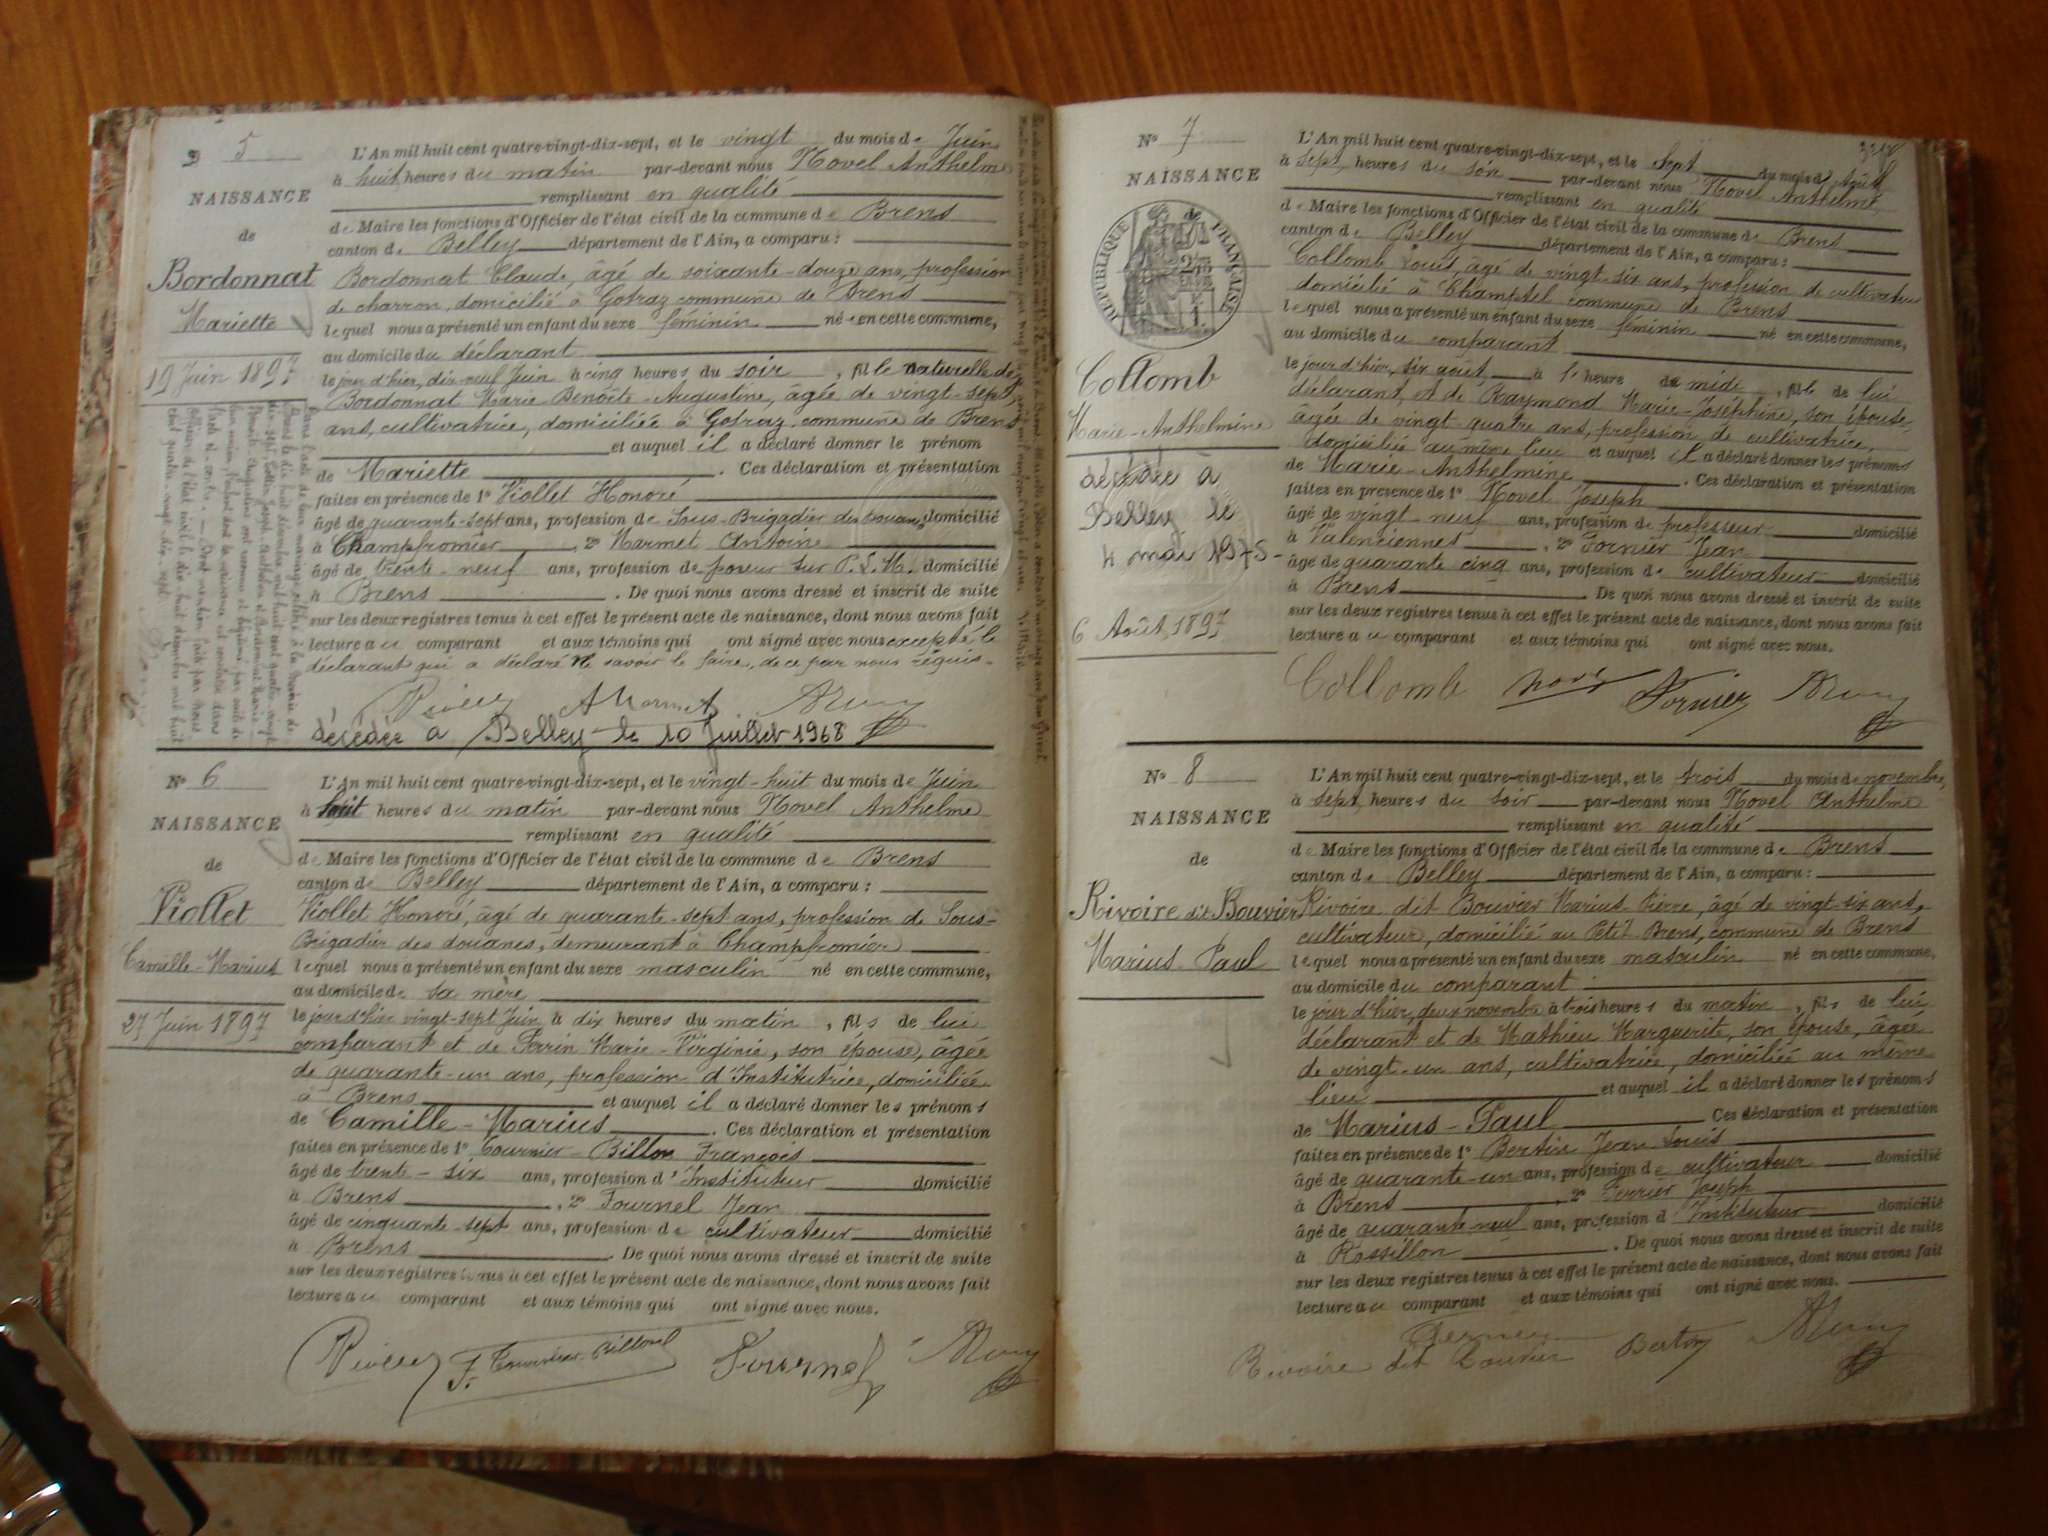 N° 5
NAISSANCE
de
Bordonnat
Mariette
19 Juin 1897
L'An mil huit cent quatre-vingt-dix-sept, et le vingt du mois de Juin
à huit heures du matin par-devant nous Novel Anthelme
remplissant en qualité
de Maire les fonctions d'Officier de l'état civil de la commune de Brens
canton de Belley département de l'Ain, a comparu :
Bordonnat Claude, âgé de soixante-douze ans, profession
de charron, domicilié à Gofraz commune de Brens
lequel nous a présenté un enfant du sexe féminin né en cette commune,
au domicile du déclarant
le jour d'hier, dix-neuf Juin à cinq heures du soir, fille naturelle de
Bordonnat Marie Benoîte-Augustine, âgée de vingt-sept
ans, cultivatrice, domiciliée à Gofraz commune de Brens
et auquel il a déclaré donner le prénom
de Mariette. Ces déclaration et présentation
faites en présence de 1° Viollet Honoré
âgé de quarante-sept ans, profession de Sous-Brigadier des douanes, domicilié
à Champfromier, 2° Marmet Antoine
âgé de trente-neuf ans, profession de poseur sur P.L.M. domicilié
à Brens. De quoi nous avons dressé et inscrit de suite
sur les deux registres tenus à cet effet le présent acte de naissance, dont nous avons fait
lecture au comparant et aux témoins qui ont signé avec nous excepté le
déclarant qui a déclaré ne savoir le faire, de ce par nous requis.
décédée à Belley le 10 Juillet 1968
N° 6
NAISSANCE
de
Viollet
Camille-Marius
27 Juin 1897
L'An mil huit cent quatre-vingt-dix-sept, et le vingt-huit du mois de Juin
à huit heures du matin par-devant nous Novel Anthelme
remplissant en qualité
de Maire les fonctions d'Officier de l'état civil de la commune de Brens
canton de Belley département de l'Ain, a comparu :
Viollet Honoré, âgé de quarante-sept ans, profession de Sous-
Brigadier des douanes, demeurant à Champfromier
lequel nous a présenté un enfant du sexe masculin né en cette commune,
au domicile de sa mère
le jour d'hier vingt-sept Juin à dix heures du matin, fils de lui
comparant et de Perrin Marie-Virginie, son épouse, âgée
de quarante-un ans, profession d'Institutrice, domiciliée
à Brens et auquel il a déclaré donner les prénoms
de Camille-Marius. Ces déclaration et présentation
faites en présence de 1° Tournier-Billon François
âgé de trente-six ans, profession d'Instituteur domicilié
à Brens, 2° Fournel Jean
âgé de cinquante-sept ans, profession de cultivateur domicilié
à Brens. De quoi nous avons dressé et inscrit de suite
sur les deux registres tenus à cet effet le présent acte de naissance, dont nous avons fait
lecture au comparant et aux témoins qui ont signé avec nous.
F. Tournier-Billon Fournel
N° 7
NAISSANCE
de
RÉPUBLIQUE FRANÇAISE
Collomb
Marie-Anthelmine
décédée à
Belley le
4 mai 1975
6 Août 1897
L'An mil huit cent quatre-vingt-dix-sept, et le sept du mois d'Août
à sept heures du soir par-devant nous Novel Anthelme
remplissant en qualité
de Maire les fonctions d'Officier de l'état civil de la commune de Brens
canton de Belley département de l'Ain, a comparu :
Collomb Louis, âgé de vingt-six ans, profession de cultivateur
domicilié à Champtel commune de Brens
lequel nous a présenté un enfant du sexe féminin né en cette commune,
au domicile du comparant
le jour d'hier, six août à 1e heure de midi, fille de lui
déclarant et de Raymond Marie-Joséphine, son épouse,
âgée de vingt-quatre ans, profession de cultivatrice,
domiciliée au même lieu et auquel il a déclaré donner les prénoms
de Marie-Anthelmine. Ces déclaration et présentation
faites en présence de 1° Novel Joseph
âgé de vingt-neuf ans, profession de professeur domicilié
à Valenciennes, 2° Fornier Jean
âgé de quarante cinq ans, profession de cultivateur domicilié
à Brens. De quoi nous avons dressé et inscrit de suite
sur les deux registres tenus à cet effet le présent acte de naissance, dont nous avons fait
lecture au comparant et aux témoins qui ont signé avec nous.
Collomb Fornier
N° 8
NAISSANCE
de
Rivoire dit Bouvier
Marius-Paul
L'An mil huit cent quatre-vingt-dix-sept, et le trois du mois de novembre
à sept heures du soir par-devant nous Novel Anthelme
remplissant en qualité
de Maire les fonctions d'Officier de l'état civil de la commune de Brens
canton de Belley département de l'Ain, a comparu :
Rivoire dit Bouvier Marius Pierre, âgé de vingt-six ans,
cultivateur, domicilié au Petit Brens, commune de Brens
lequel nous a présenté un enfant du sexe masculin né en cette commune,
au domicile du comparant
le jour d'hier, deux novembre à trois heures du matin, fils de lui
déclarant et de Mathieu Marguerite, son épouse, âgée
de vingt-un ans, cultivatrice, domiciliée au même
lieu et auquel il a déclaré donner les prénoms
de Marius-Paul Ces déclaration et présentation
faites en présence de 1° Bertin Jean Louis
âgé de quarante-un ans, profession de cultivateur domicilié
à Brens, 2° Terrier Joseph
âgé de quarante-neuf ans, profession d'Instituteur domicilié
à Rossillon. De quoi nous avons dressé et inscrit de suite
sur les deux registres tenus à cet effet le présent acte de naissance, dont nous avons fait
lecture au comparant et aux témoins qui ont signé avec nous.
Rivoire dit Bouvier